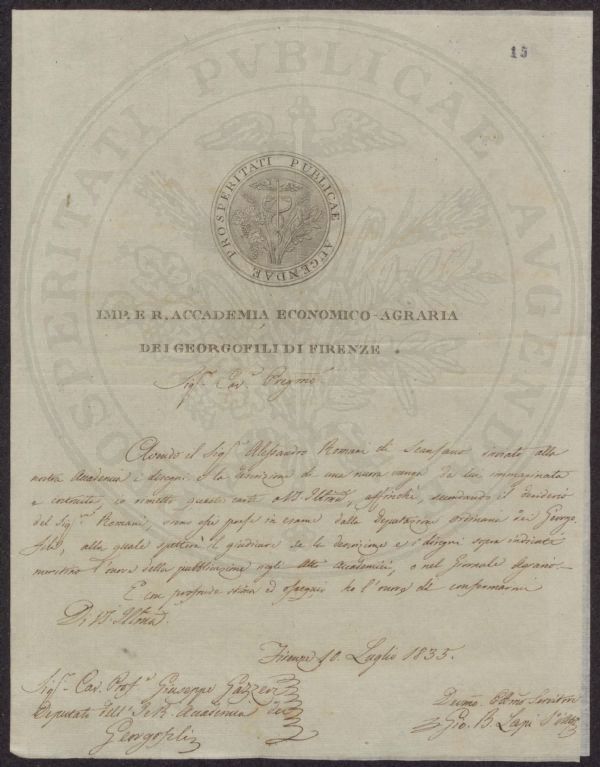 15
PROSPERITATI PUBLICAE AUGENDAE
PROSPERITATI PVBLICAE AVGENDAE
IMP. E R. ACCADEMIA ECONOMICO-AGRARIA
DEI GEORGOFILI DI FIRENZE.
Sig.r Cav.r Pregmo
Avendo il Sig.r Alessandro Romani di Scansano inviato alla
nostra Accademia i disegni e la descrizione di una nuova vanga da lui immaginata
e costruita, io rimetto queste carte a V.S. Illma, affinchè, secondando il desiderio
del Sig.r Romani, siano esse prese in esame dalla Deputazione ordinaria dei Georgo-
fili, alla quale spetterà il giudicare se la descrizione e i disegni sopra indicati
meritino l'onore della pubblicazione negli Atti Accademici, o nel Giornale Agrario.
E con profonda stima ed ossequio ho l'onore di confermarmi
Di V.S. Illma
Firenze 10. Luglio 1835.
Sig.r Cav. Prof.r Giuseppe Gazzeri
Deputato dell' I. e R. Accademia dei
Georgofili
Devmo Obbmo Servitore
Gio. B. Lapi